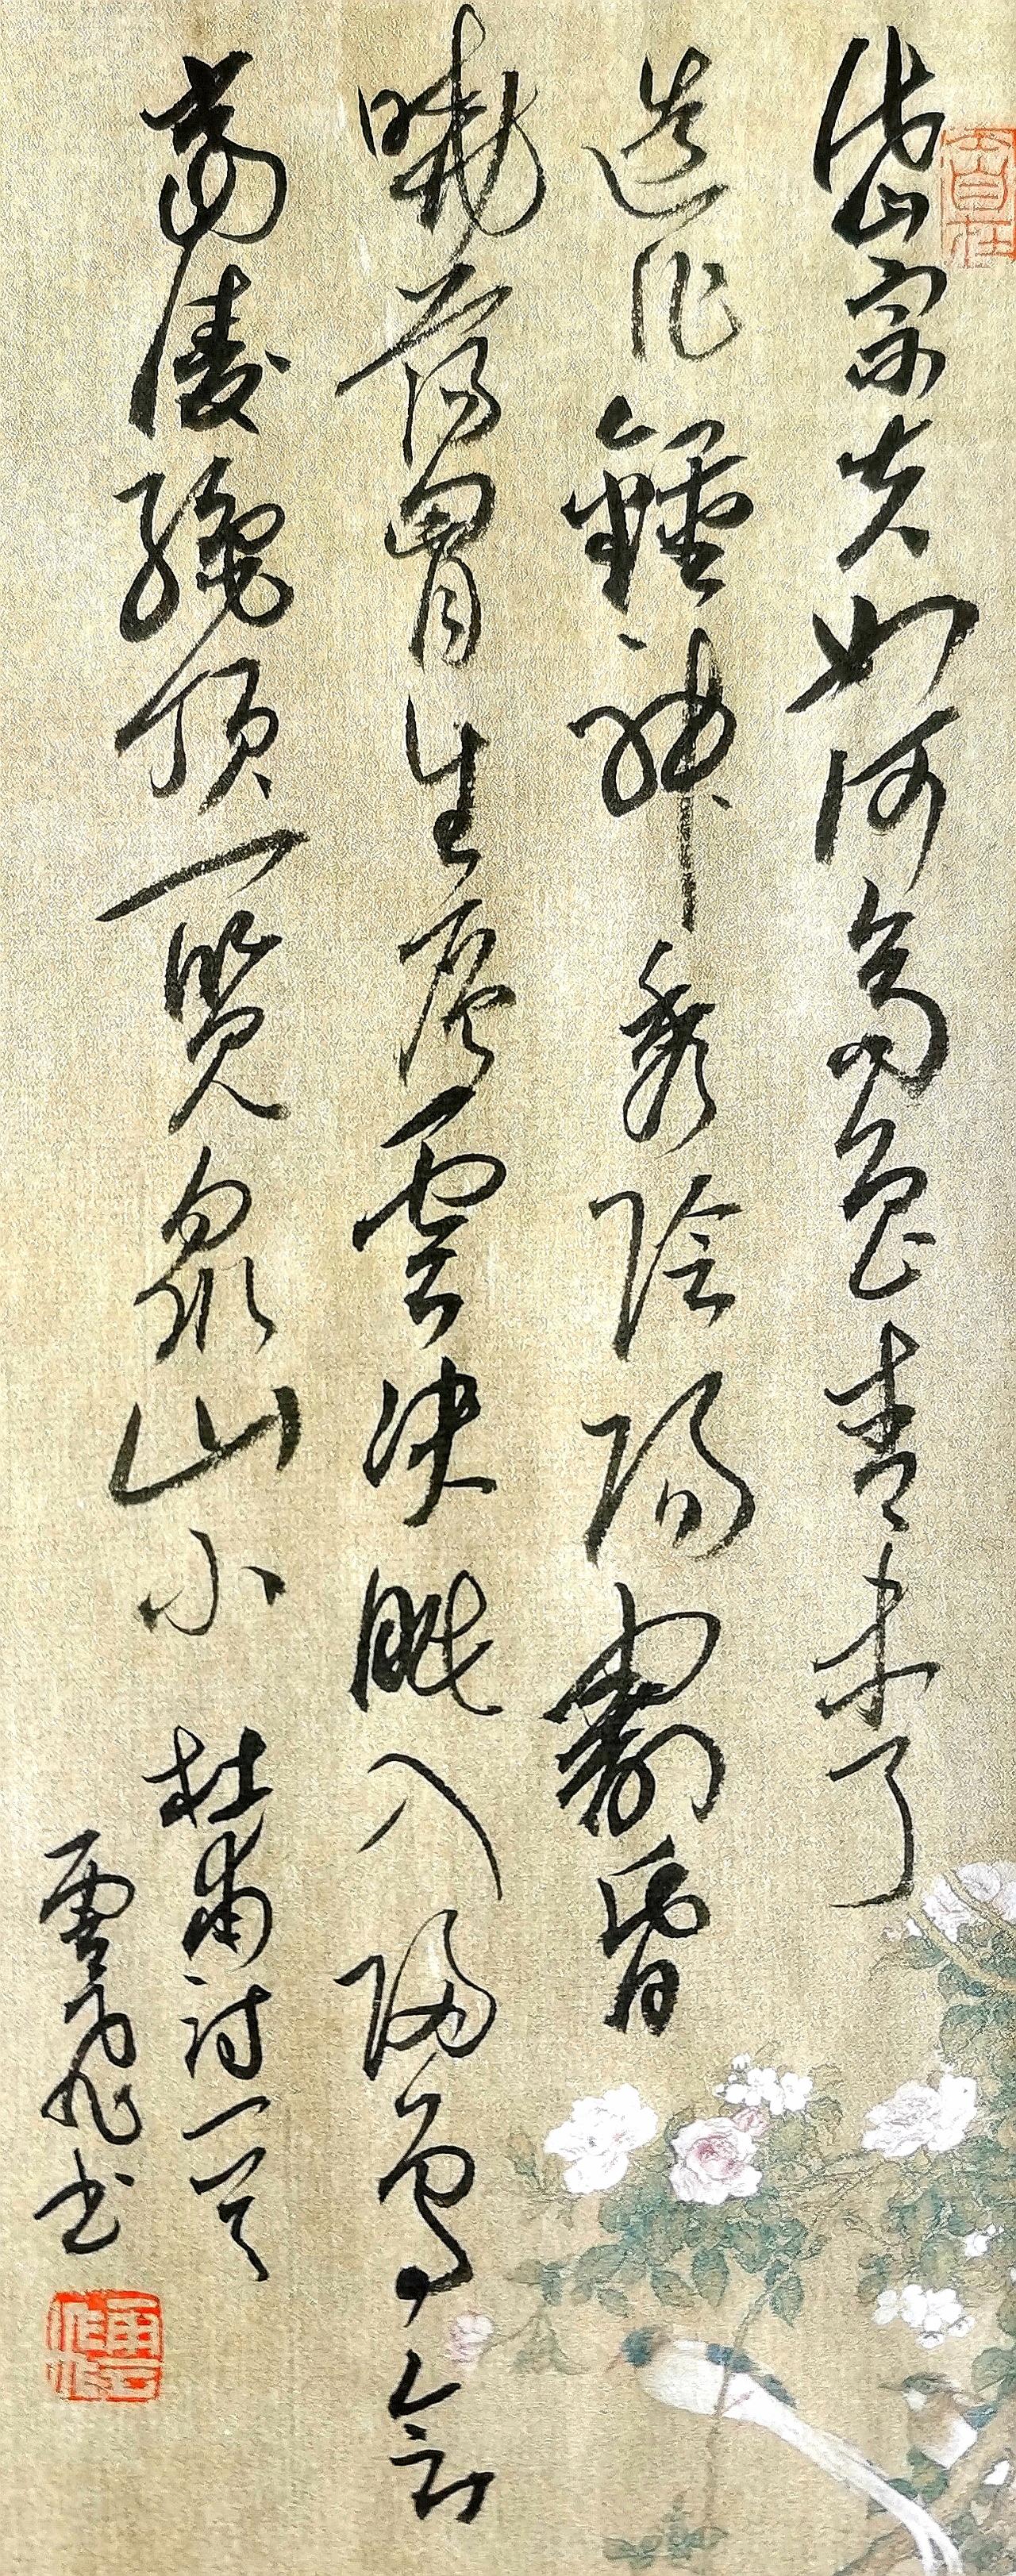 岱宗夫如何齊魯青未了
造化鍾神秀陰陽割昏
曉蕩胸生層雲決眦入歸鳥會
當凌絕頂一覽眾山小 杜甫詩一首
雲飛書